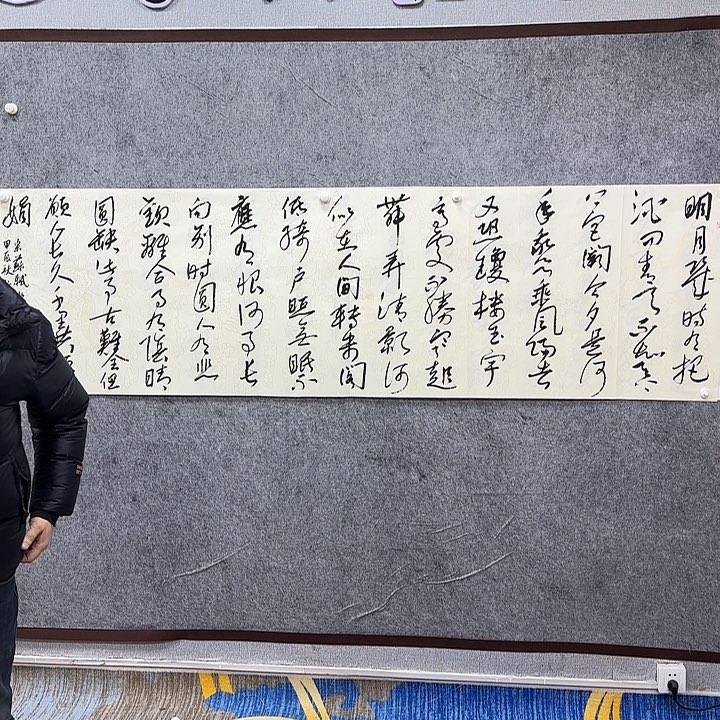 明月幾時有把
酒问青天不知天
上宫闕今夕是何
年我欲乘風歸去
又恐瓊樓玉宇
高處不勝寒起
舞弄清影何
似在人间轉朱阁
低绮户照無眠不
應有恨何事长
向别时圆人有悲
歡離合月有陰晴
圆缺此事古難全但
願人长久千里共
娟
宋蘇軾
甲辰秋